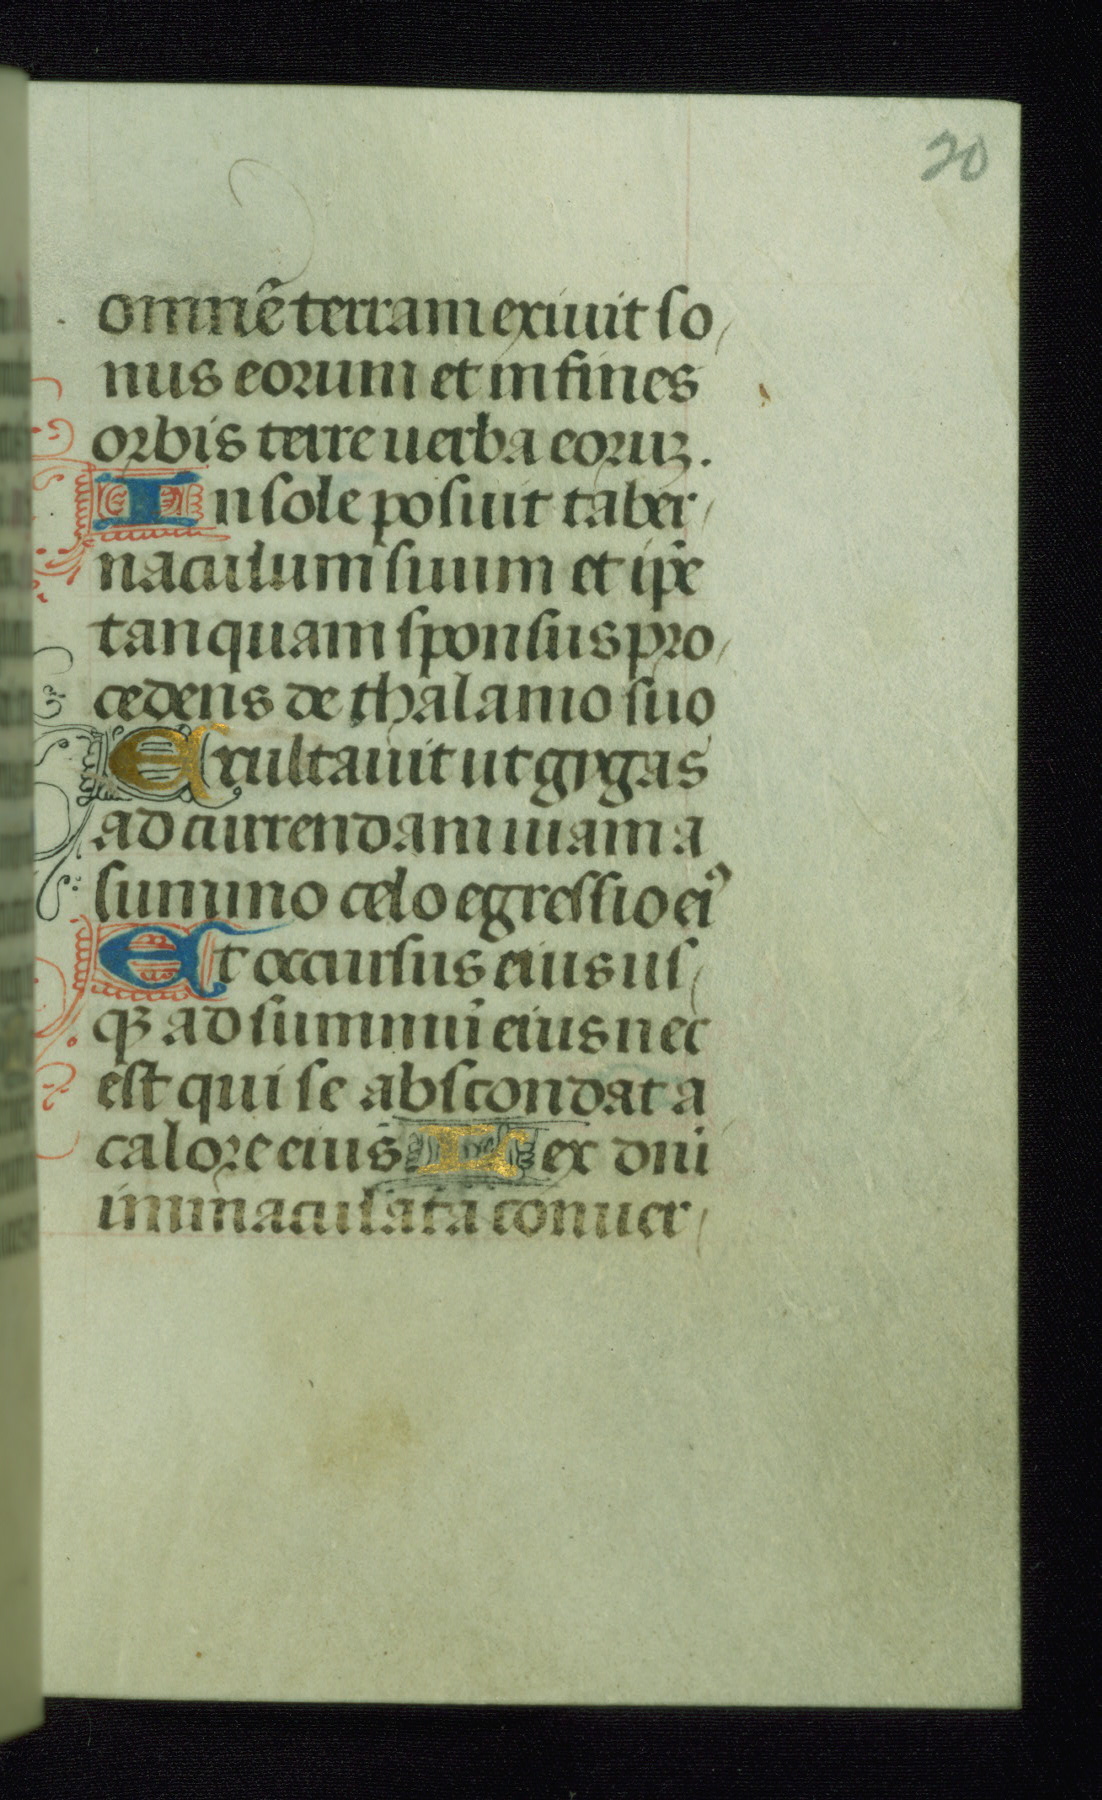 20
omnē terram exiuit so/
nus eorum et in fines
orbis terre uerba eoruꝫ.
In sole posuit taber/
naculum suum et ip̄e
tanquam sponsus pro/
cedens de thalamo suo
Exultauit ut gygas
ad currendam uiam a
summo celo egressio eiꝰ
Et occursus eius us/
qꝫ ad summū eius nec
est qui se abscondat a
calore eius Lex dni
immaculata conuer/